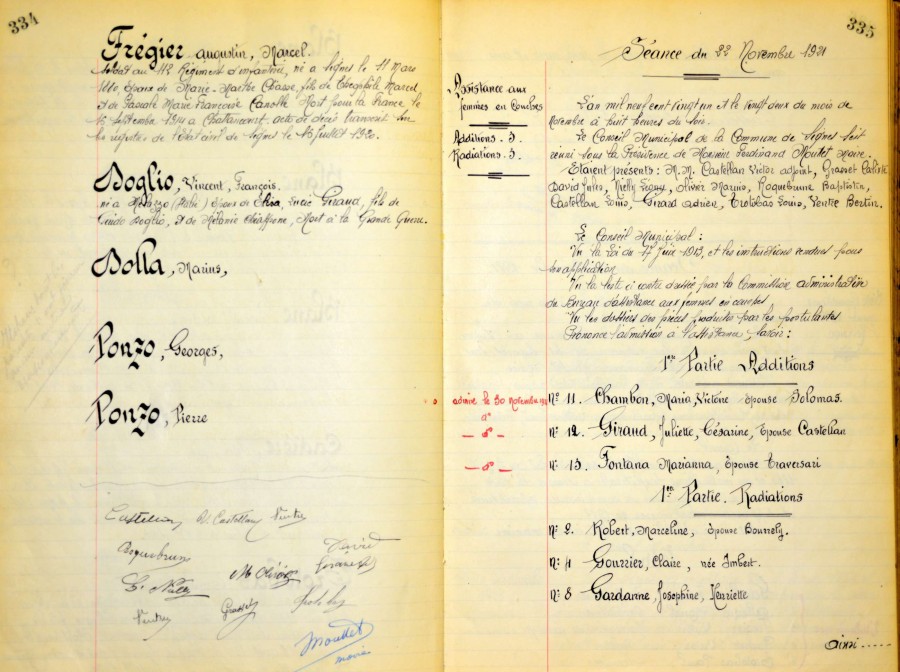 334
Frégier Augustin, Marcel.
Soldat au 112 Régiment d'infanterie, né a Signes le 11 Mars
époux de Marie-Marthe Chasse, fils de Théophile Marcel
et de Marie Françoise Mort pour la France le
Septembre 1914 a Chattancourt, acte de décès transcrit sur
registres de l'état civil de Signes le 15 juillet 1920.
Boglio, Vincent, François.
né a époux de Elisa, Lucie Giraud, fils de
Boglio, et de Mélanie Chiaffrene, Mort à la Grande Guerre.
Bolla, Marius,
Ponzo, Georges,
Ponzo, Pierre
Castellan V. Castellan Ventre
Roquebrun David
L. Nielly M. Olivier Girard
Ventre Grasset
Moutet
maire
335
Séance du 22 Novembre 1921
Assistance aux
femmes en Couches
Additions. 3.
Radiations. 3.
L'an mil neuf cent vingt un et le vingt deux du mois de
Novembre à huit heures du soir.
Le Conseil Municipal de la Commune de Signes s'est
réuni sous la Présidence de Monsieur Ferdinand Moutet Maire.
Etaient présents: M.M. Castellan Victor adjoint, Grasset Calixte
David Jules, Nielly Olivier Marius, Roquebrune Baptistin,
Castellan Louis, Girard Adrien, Trotobas Louis, Ventre Bertin.
Le Conseil Municipal:
Vu la Loi du 17 Juin 1913, et les instructions rendues pour
son application
Vu la liste ci contre dressée par la Commission administrative
du Bureau d'assistance aux femmes en couches
Vu les dossiers des pièces produites par les postulantes
Prononce l'admission à l'assistance, savoir:
1ere Partie Additions
admise le 30 Novembre
N° 11. Chambon, Maria, Victoire épouse Bolomas.
— d° — N° 12. Giraud, Juliette, Césarine, Epouse Castellan
— d° — N° 13. Fontana Marianna, Epouse Traversari
1ere Partie. Radiations
N° 2. Robert, Marceline, épouse Bourrely.
N° 4 Gourrier, Claire, née Imbert.
N° 8 Gardanne, Josephine, Henriette
Ainsi -----